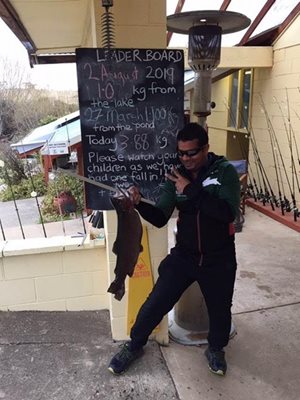 LEADERBOARD
2 August 2019
1.0 kg from
the lake
27 March 1.100 kg
from the pond
Today 3.88 kg
Please watch your
children as we have
had one fall in